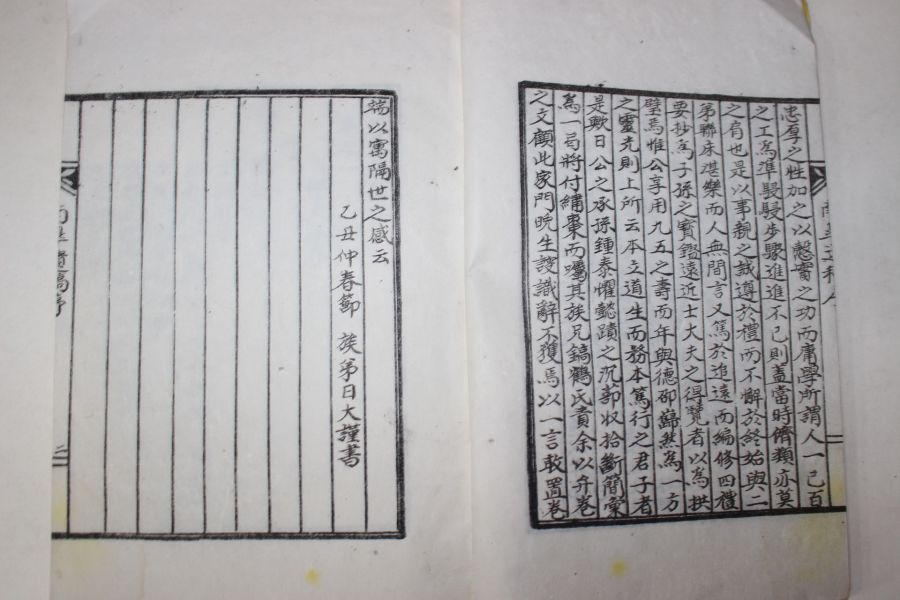 忠厚之性加之以慤實之功而庸學所謂人一己百
之工為準駸駸步驟進進不已則盖當時儕類亦莫
之肩也是以事親之誠遵於禮而不懈於終始與二
弟聯床湛樂而人無間言又篤於追遠而編修四禮
要抄為子孫之寶鑑遠近士大夫之得覽者以為拱
璧焉惟公享用九五之壽而年與德卲巋然為一方
之靈光則上所云本立道生而務本篤行之君子者
是歟日公之承孫鍾泰懼懿蹟之沉郭收拾斷簡彙
為一局將付繡棗而囑其族兄鎬鶴氏責余以弁卷
之文顧此家門晩生謏識辭不獲焉以一言敢置卷
端以寓隔世之感云
乙丑仲春節 族弟日大謹書